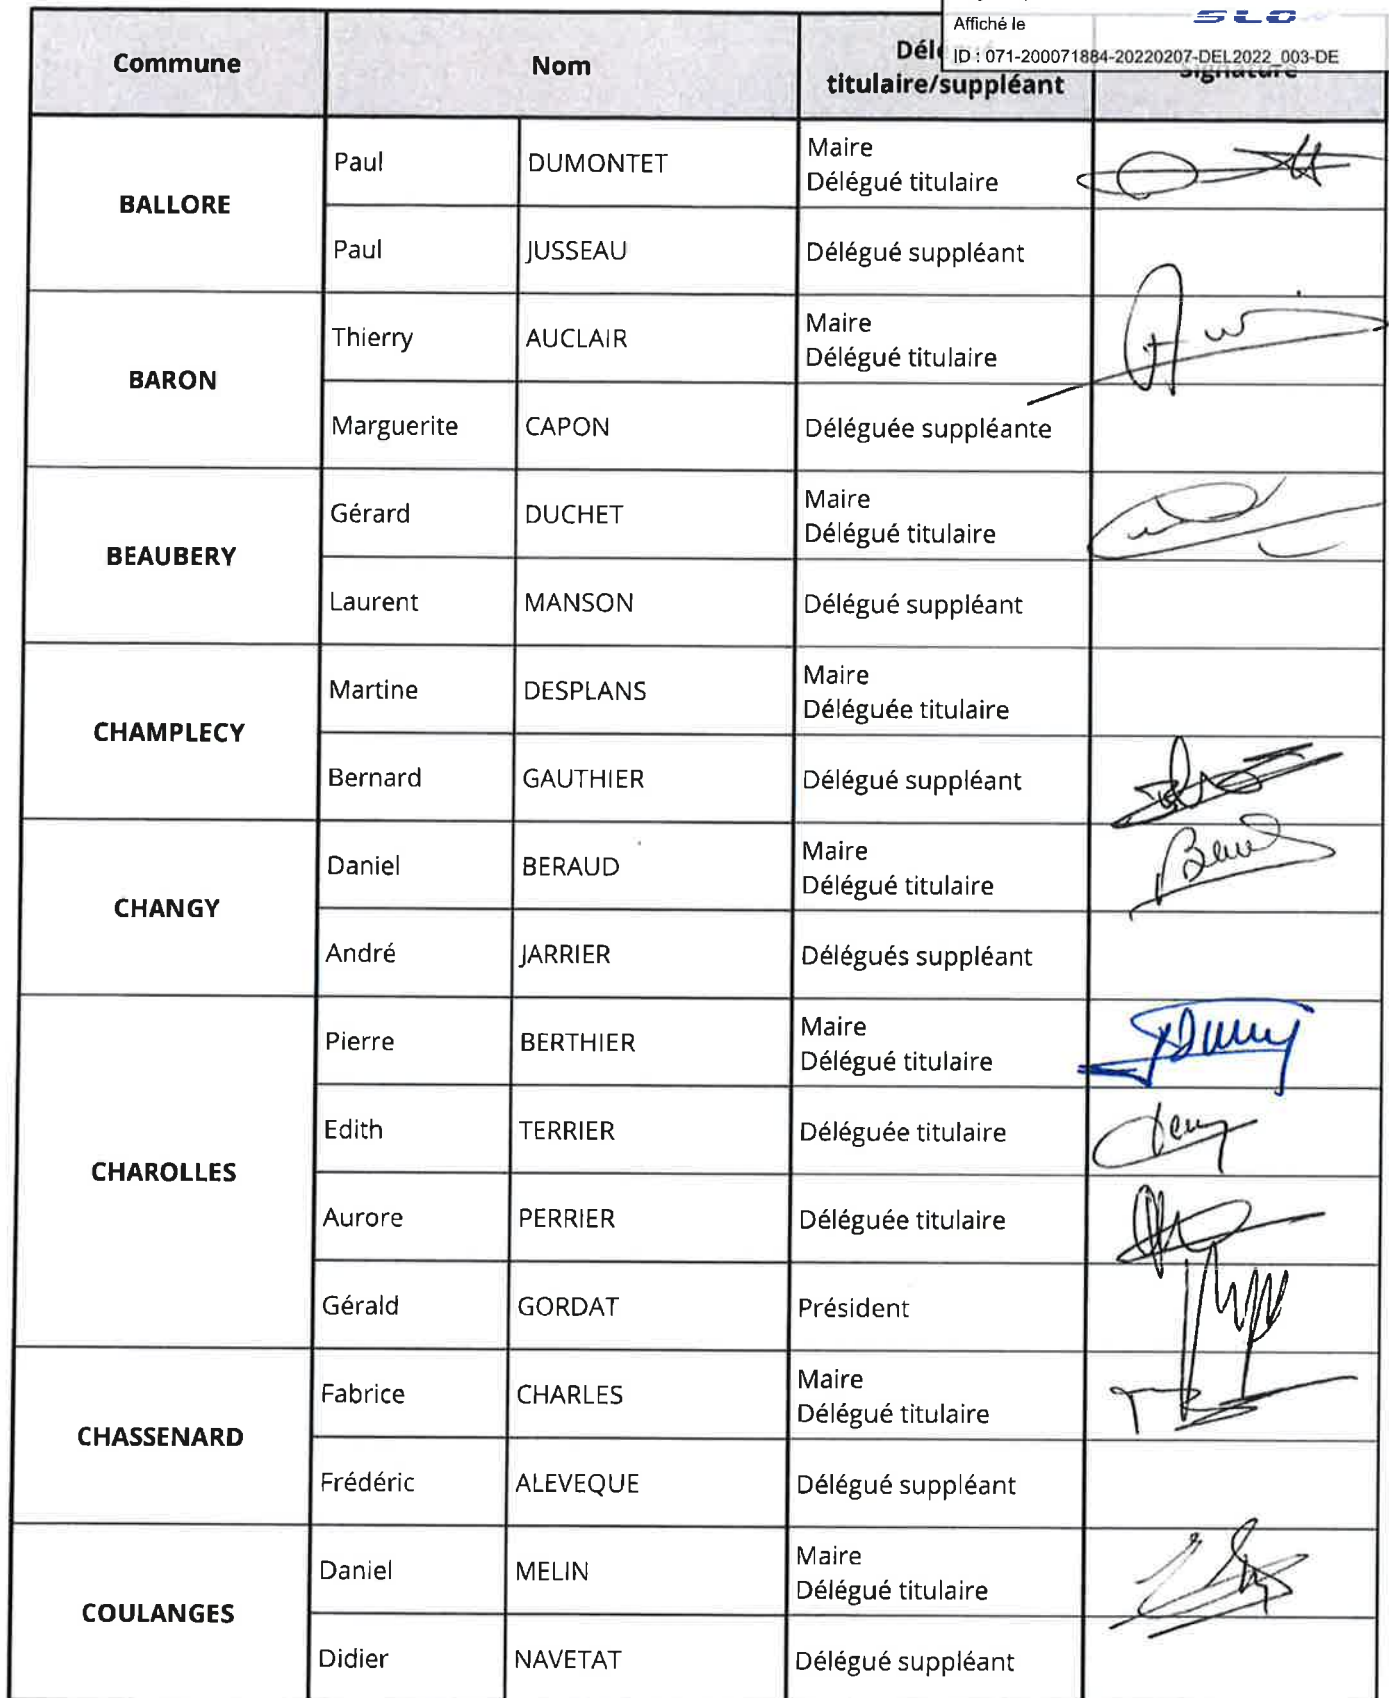 Affiché le
SLO
ID : 071-200071884-20220207-DEL2022_003-DE
Commune Nom Délégué titulaire/suppléant Signature
BALLORE
Paul DUMONTET Maire
Délégué titulaire
Paul JUSSEAU Délégué suppléant
BARON
Thierry AUCLAIR Maire
Délégué titulaire
Marguerite CAPON Déléguée suppléante
BEAUBERY
Gérard DUCHET Maire
Délégué titulaire
Laurent MANSON Délégué suppléant
CHAMPLECY
Martine DESPLANS Maire
Déléguée titulaire
Bernard GAUTHIER Délégué suppléant
CHANGY
Daniel BERAUD Maire
Délégué titulaire
André JARRIER Délégués suppléant
CHAROLLES
Pierre BERTHIER Maire
Délégué titulaire
Edith TERRIER Déléguée titulaire
Aurore PERRIER Déléguée titulaire
Gérald GORDAT Président
CHASSENARD
Fabrice CHARLES Maire
Délégué titulaire
Frédéric ALEVEQUE Délégué suppléant
COULANGES
Daniel MELIN Maire
Délégué titulaire
Didier NAVETAT Délégué suppléant